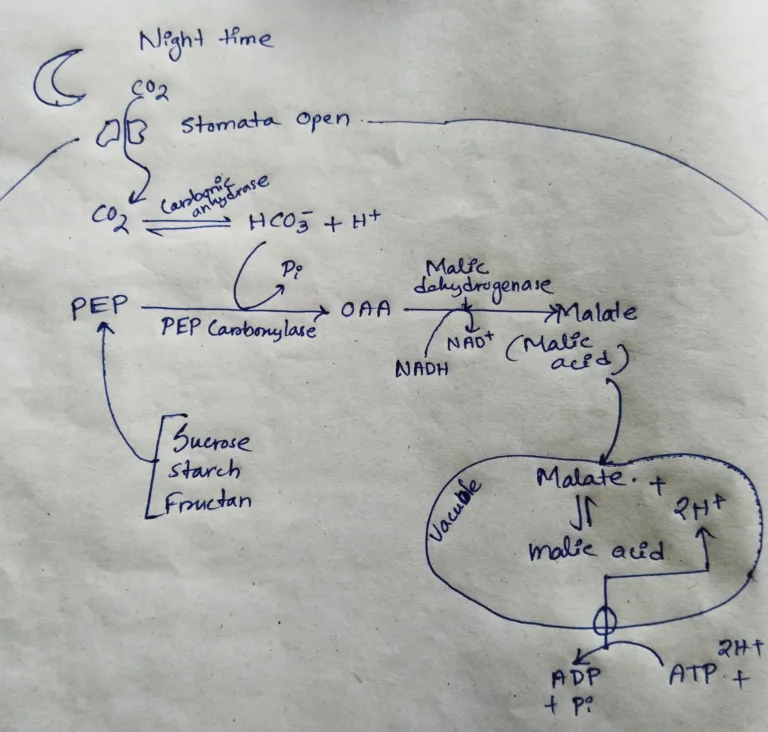 Night time
CO2
Stomata Open
CO2
Carbonic
anhydrase
HCO3- + H+
Pi
Malic
dahydrogenase
PEP
OAA
Malate
PEP Carboxylase
NAD+
(Malic
acid)
NADH
Sucrose
Starch
Fructan
Vacuole
Malate +
2H+
malic acid
2H+
ADP
ATP +
+ Pi